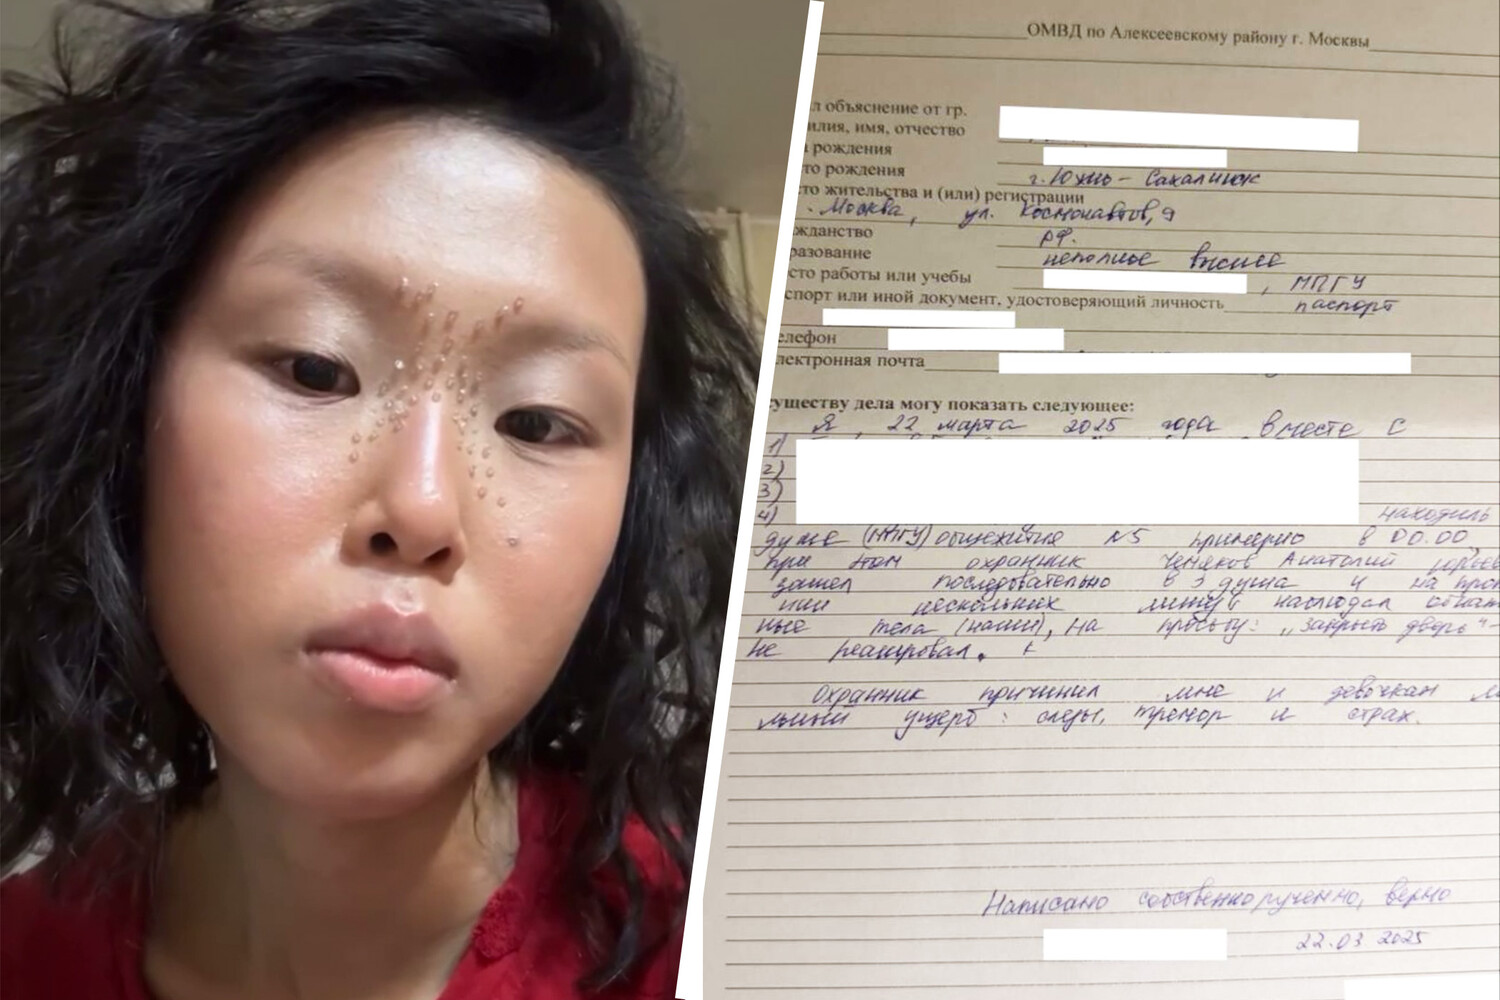 ОМВД по Алексеевскому району г. Москвы
л объяснение от гр.
илия, имя, отчество
а рождения
то рождения г. Южно-Сахалинск
сто жительства и (или) регистрации
. Москва, ул. Космонавтов, 9
жданство РФ.
разование неполное высшее
сто работы или учебы , МПГУ
спорт или иной документ, удостоверяющий личность паспорт
елефон
лектронная почта
существу дела могу показать следующее:
Я, 22 марта 2025 года вместе с
1)
2)
3)
4) находиль
душе (МПГУ) общежития №5 примерно в 00.00,
при этом охранник Анатолий Юрьев
зашел последовательно в 3 душа и на протя
нии нескольких минут наблюдал обнаж
ные тела (наши), на просьбу: "закрыть дверь" -
не реагировал.
Охранник причинил мне и девочкам м
льный ущерб: слезы, тремор и страх.
Написано собственноручно, верно
22.03 2025